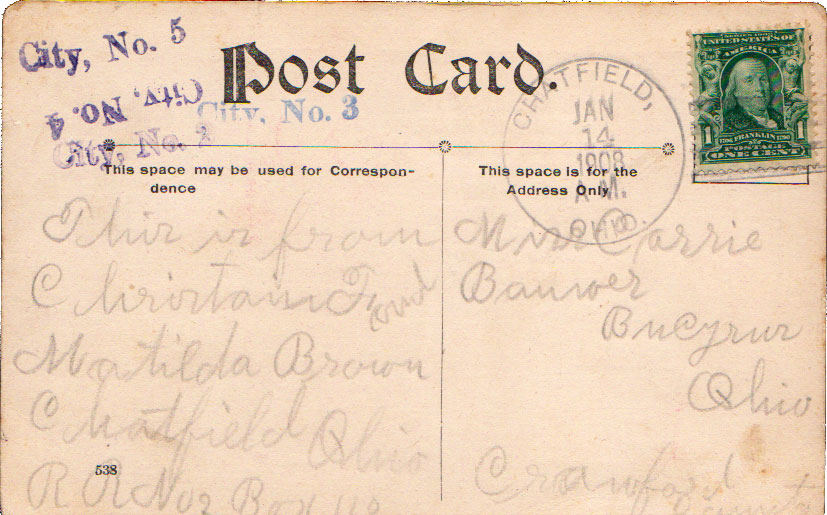 City, No. 5
City, No. 4
City, No. 3
City, No. 2
Post Card.
CHATFIELD,
JAN
14
1908
A.M.
OHIO.
SERIES 1902
UNITED STATES OF
AMERICA
1 1706 FRANKLIN 1790 1
POSTAGE
ONE CENT
This space may be used for Correspon-
dence
This space is for the
Address Only
This is from
Christain Friend
Matilda Brown
Chatfield Ohio
R R No 2 Box 118
538
Miss Carrie
Bauwer
Bucyrus
Ohio
Crawford
County